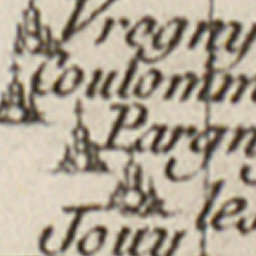 Vregny
Coulomm
Pargn
les
Jouy